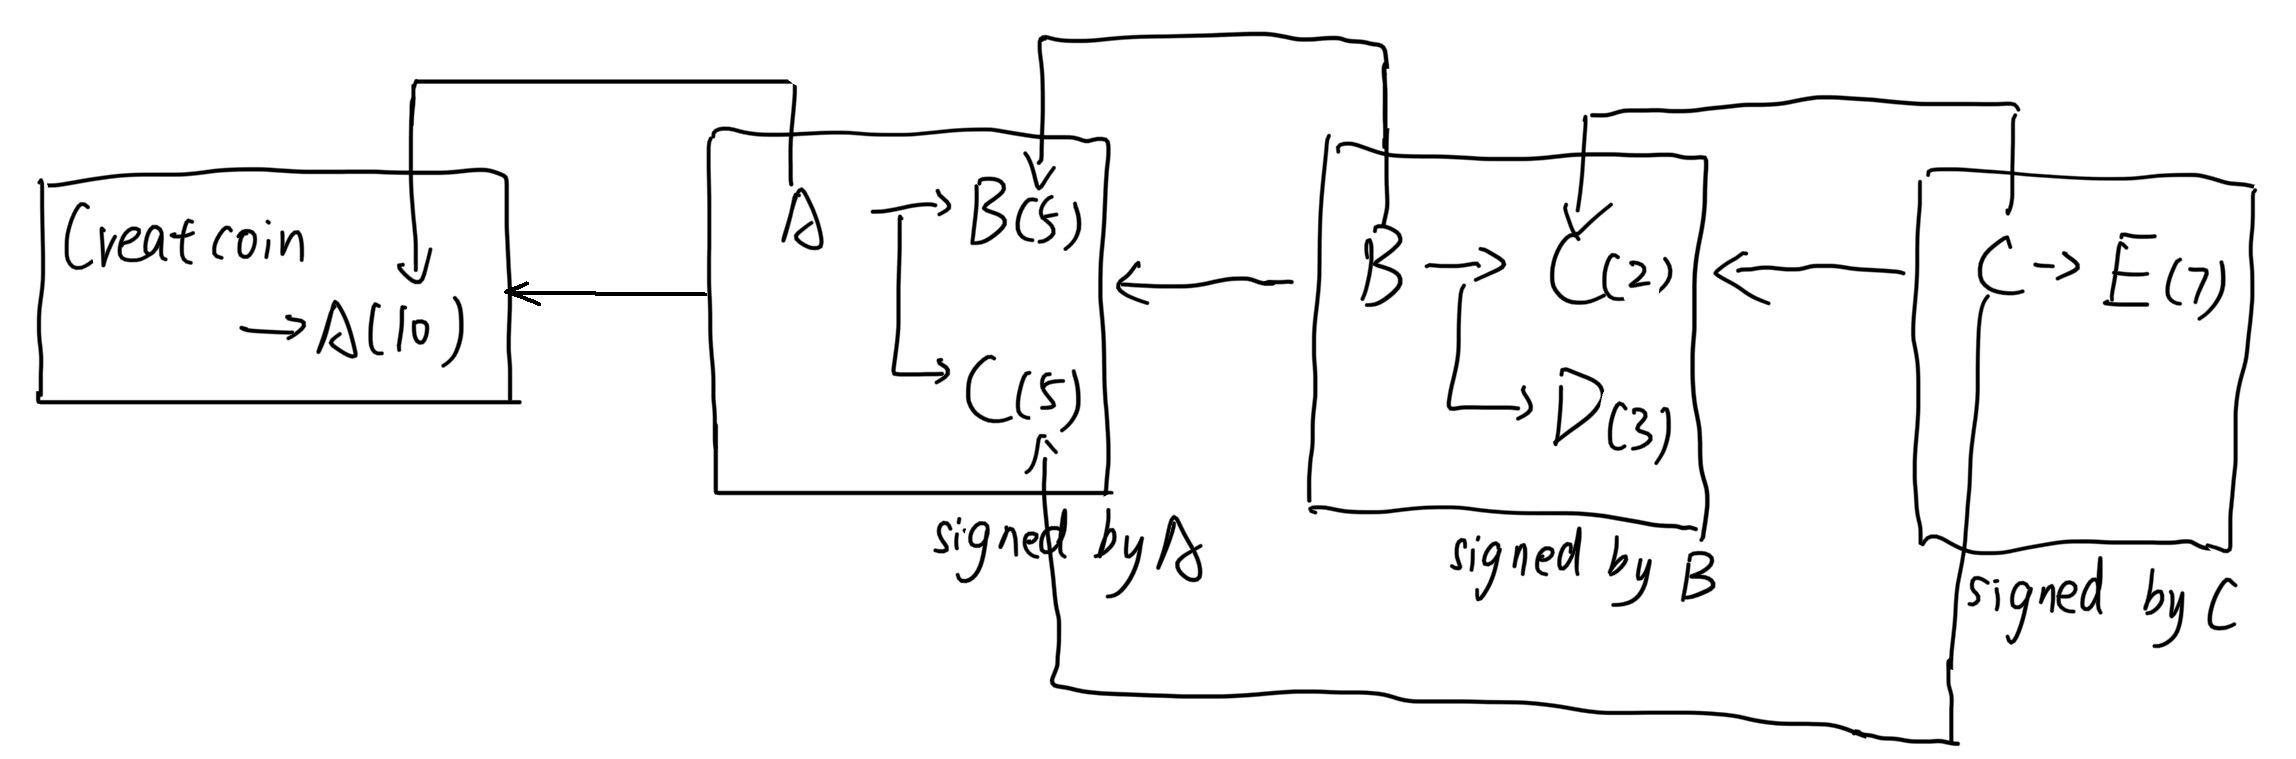 Creat coin
→ A(10)
A → B(5)
C(5)
signed by A
B → C(2)
D(3)
signed by B
C → E(7)
signed by C